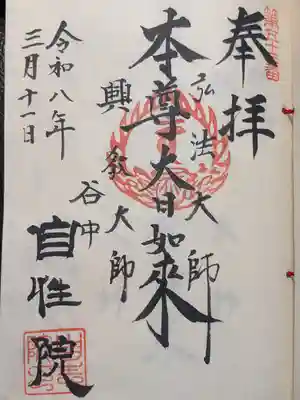 奉拝
弘法大師
本尊大日如来
興教大師
谷中
自性院
令和八年
三月十一日